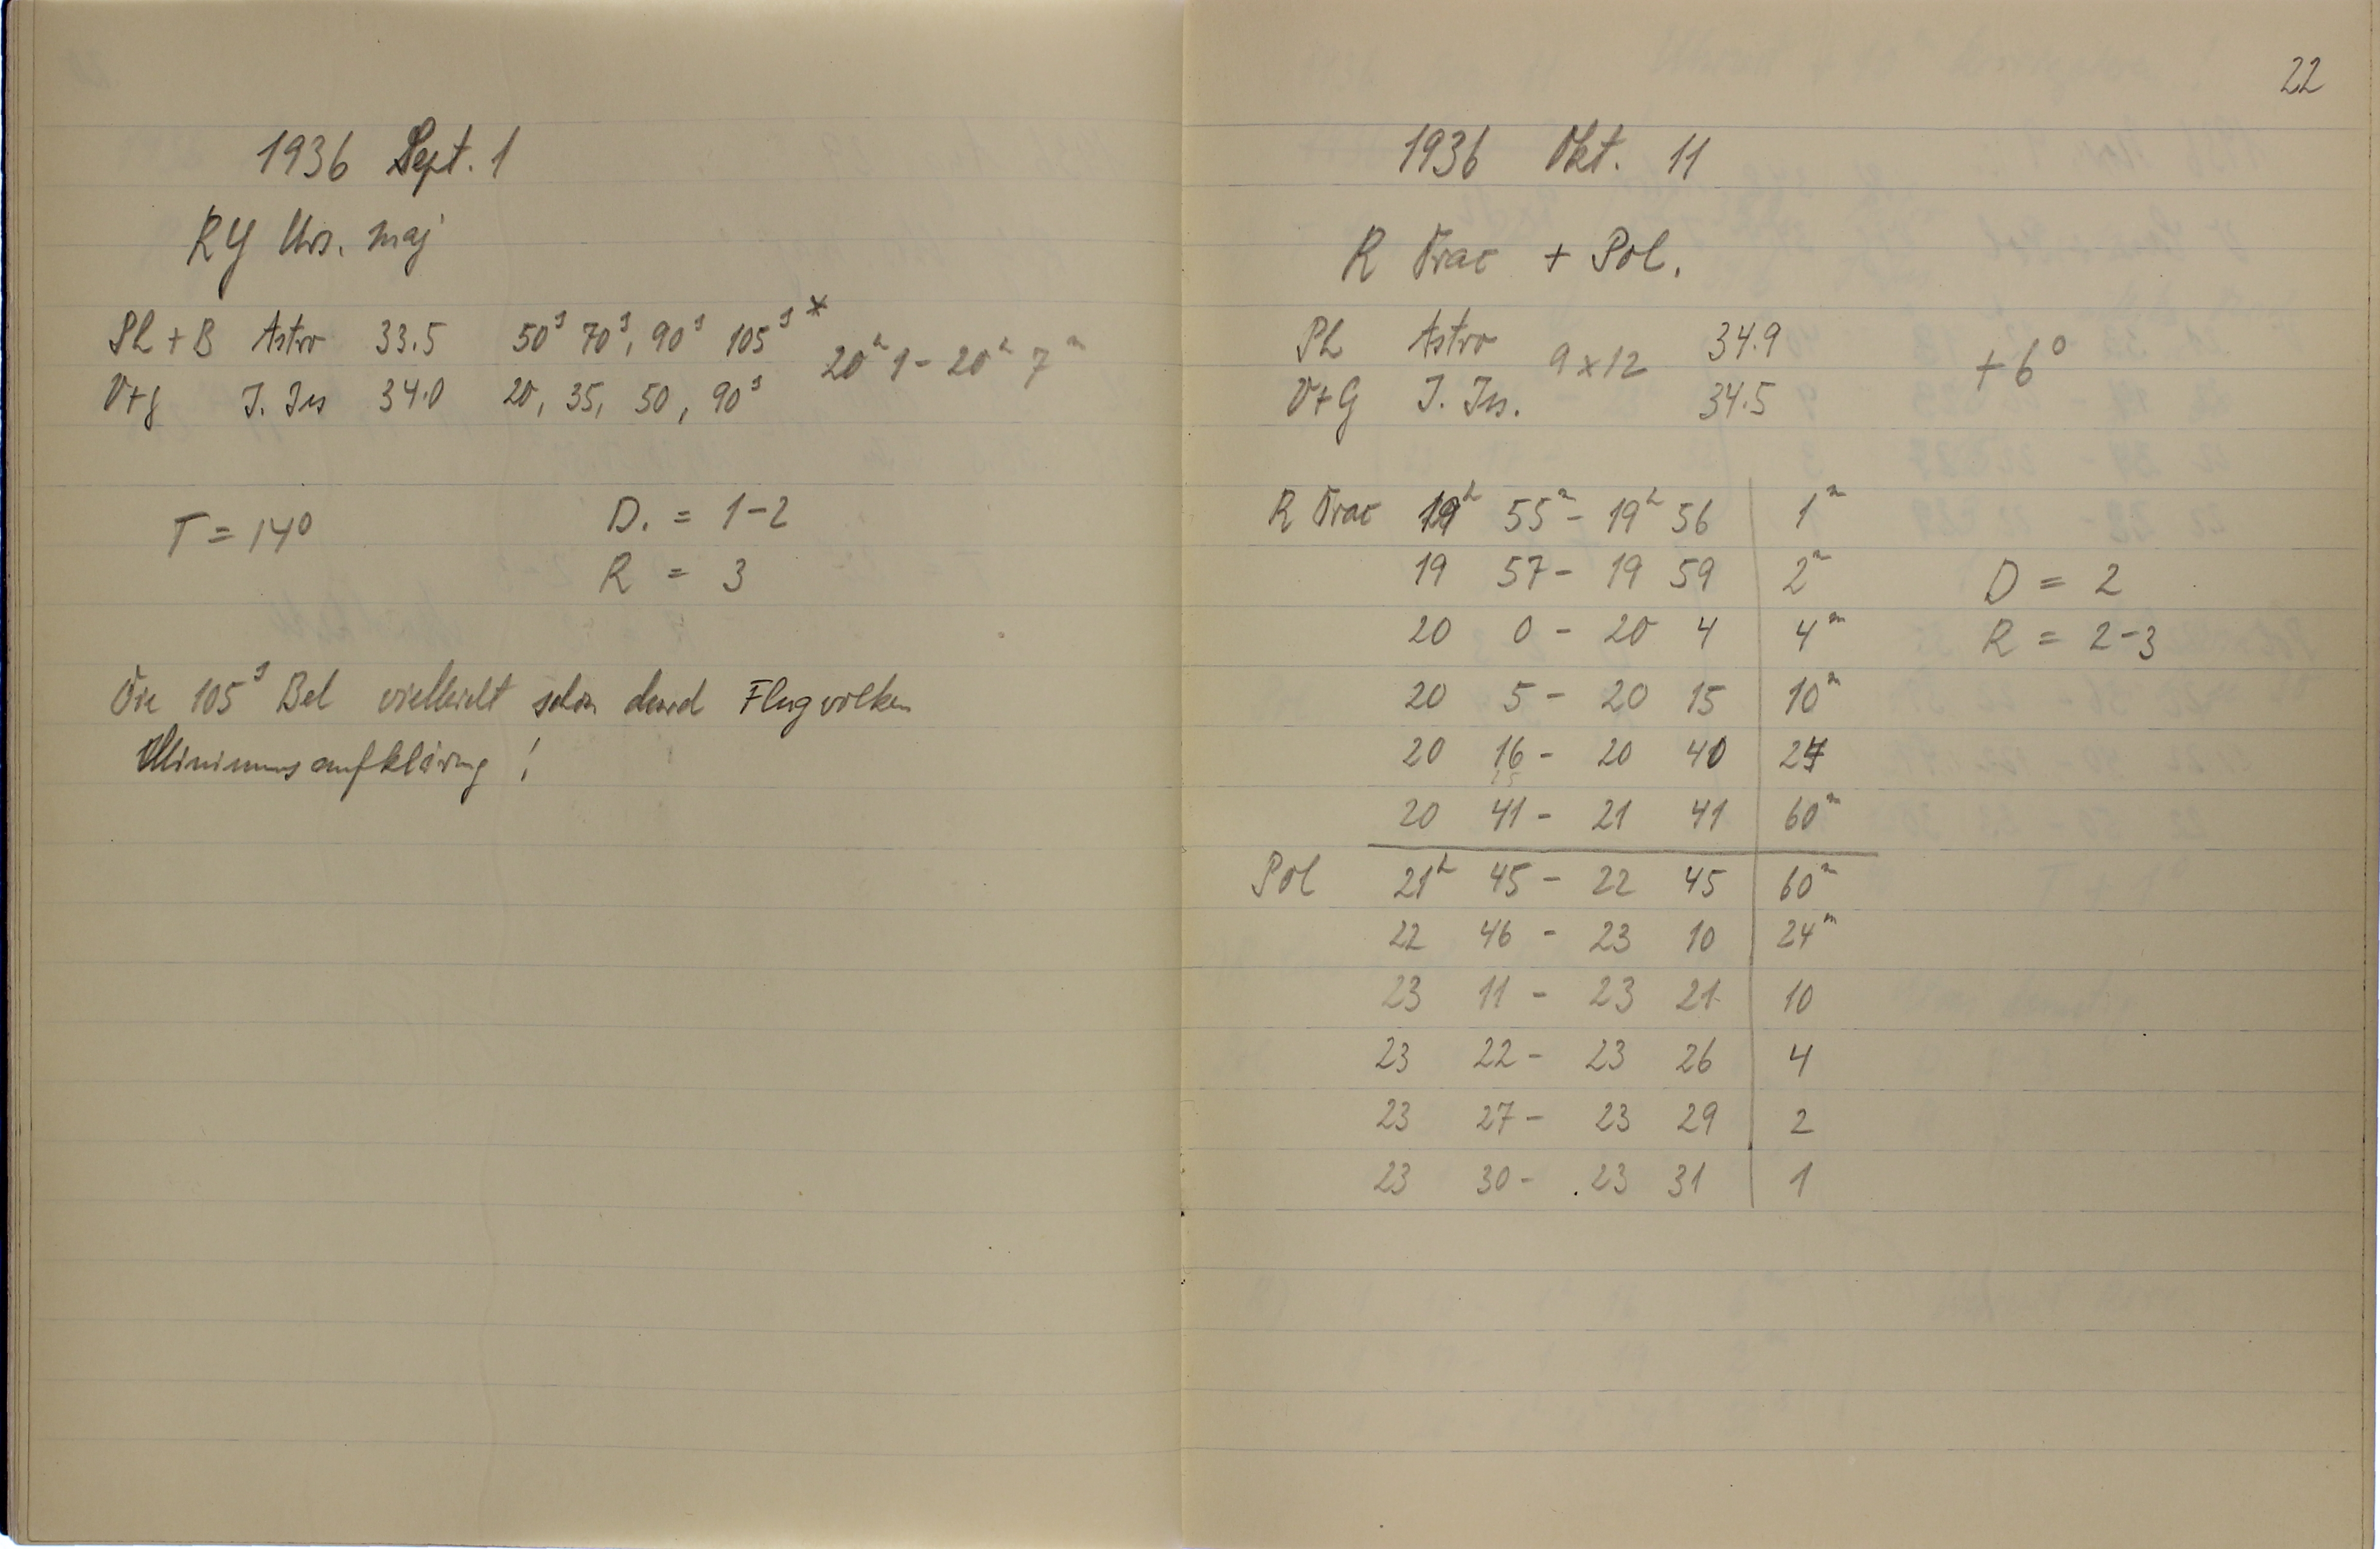 1936 Sept. 1
RY Urs. maj
Ph + B Astro 33.5 50ˢ 70ˢ, 90ˢ 105ˢ * 20ʰ 1 - 20ʰ 7ᵐ
V+g J. Jss 34.0 20, 35, 50, 90ˢ
T = 14⁰ D. = 1-2
R = 3
Die 105ˢ Bel vielleicht schon durch Flugwolken
Minimums aufklärung !
22
1936 Okt. 11
R Drac + Pol.
Ph Astro 9 x 12 34.9 + 6⁰
V+G J. Jss. 34.5
R Drac 19ʰ 55ᵐ - 19ʰ 56 1ᵐ
19 57 - 19 59 2ᵐ D = 2
20 0 - 20 4 4ᵐ R = 2-3
20 5 - 20 15 10ᵐ
20 16 - 20 40 24
20 41 - 21 41 60ᵐ
Pol 21ʰ 45 - 22 45 60ᵐ
22 46 - 23 10 24ᵐ
23 11 - 23 21 10
23 22 - 23 26 4
23 27 - 23 29 2
23 30 - 23 31 1